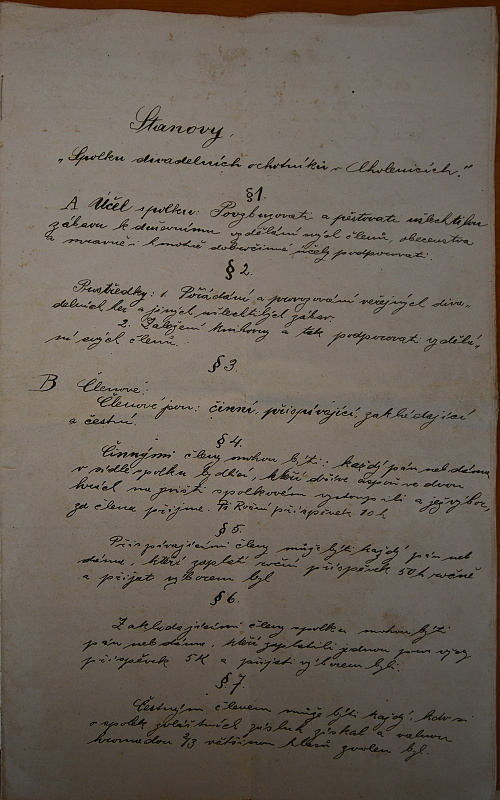 Stanovy.
„Spolku divadelních ochotníků v Cholenicích."
§ 1.
A Účel spolku: Povzbuzovati a pěstovati ušlechtilou
zábavu k duševnímu vzdělání svých členů, obecenstva
a mravně i hmotně dobročinné účely podporovati.
§ 2.
Prostředky: 1. Pořádání a provozování veřejných diva-
delních her a jiných ušlechtilých zábav.
2. Založení knihovny a tak podporovati vzdělá-
ní svých členů.
§ 3.
B Členové:
Členové jsou: činní, přispívající, zakládající
a čestní.
§ 4.
Činnými členy mohou býti: každý pán neb dáma
v sídle spolku bydlící, kteří dříve aspoň ve dvou
hrách na jevišti spolkovém vystoupili a jej výbor
za člena přijme. Roční příspěvek 10 h.
§ 5.
Přispívajícími členy může býti každý pán neb
dáma, kteří zaplatí roční příspěvek 50 h ročně
a přijat výborem byl.
§ 6.
Zakládajícími členy spolku mohou býti
pán neb dáma, kteří zaplatili jednou pro vždy
příspěvek 5K a přijati výborem byli.
§ 7.
Čestným členem může býti každý, kdo si
o spolek zvláštních zásluh získal a valnou
hromadou 2/3 většinou hlasů zvolen byl.